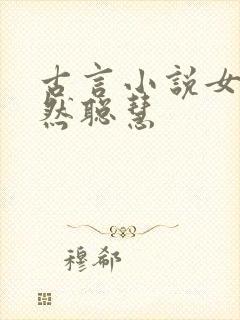 古言小說女
然聪慧
穆郗